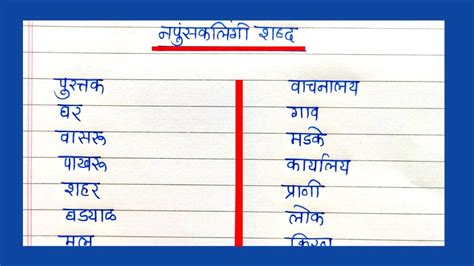 नपुंसकलिंगी शब्द
पुस्तक
घर
वासरू
पाखरू
शहर
घडयाळ
वाचनालय
गाव
मडके
कार्यालय
प्राणी
लोक